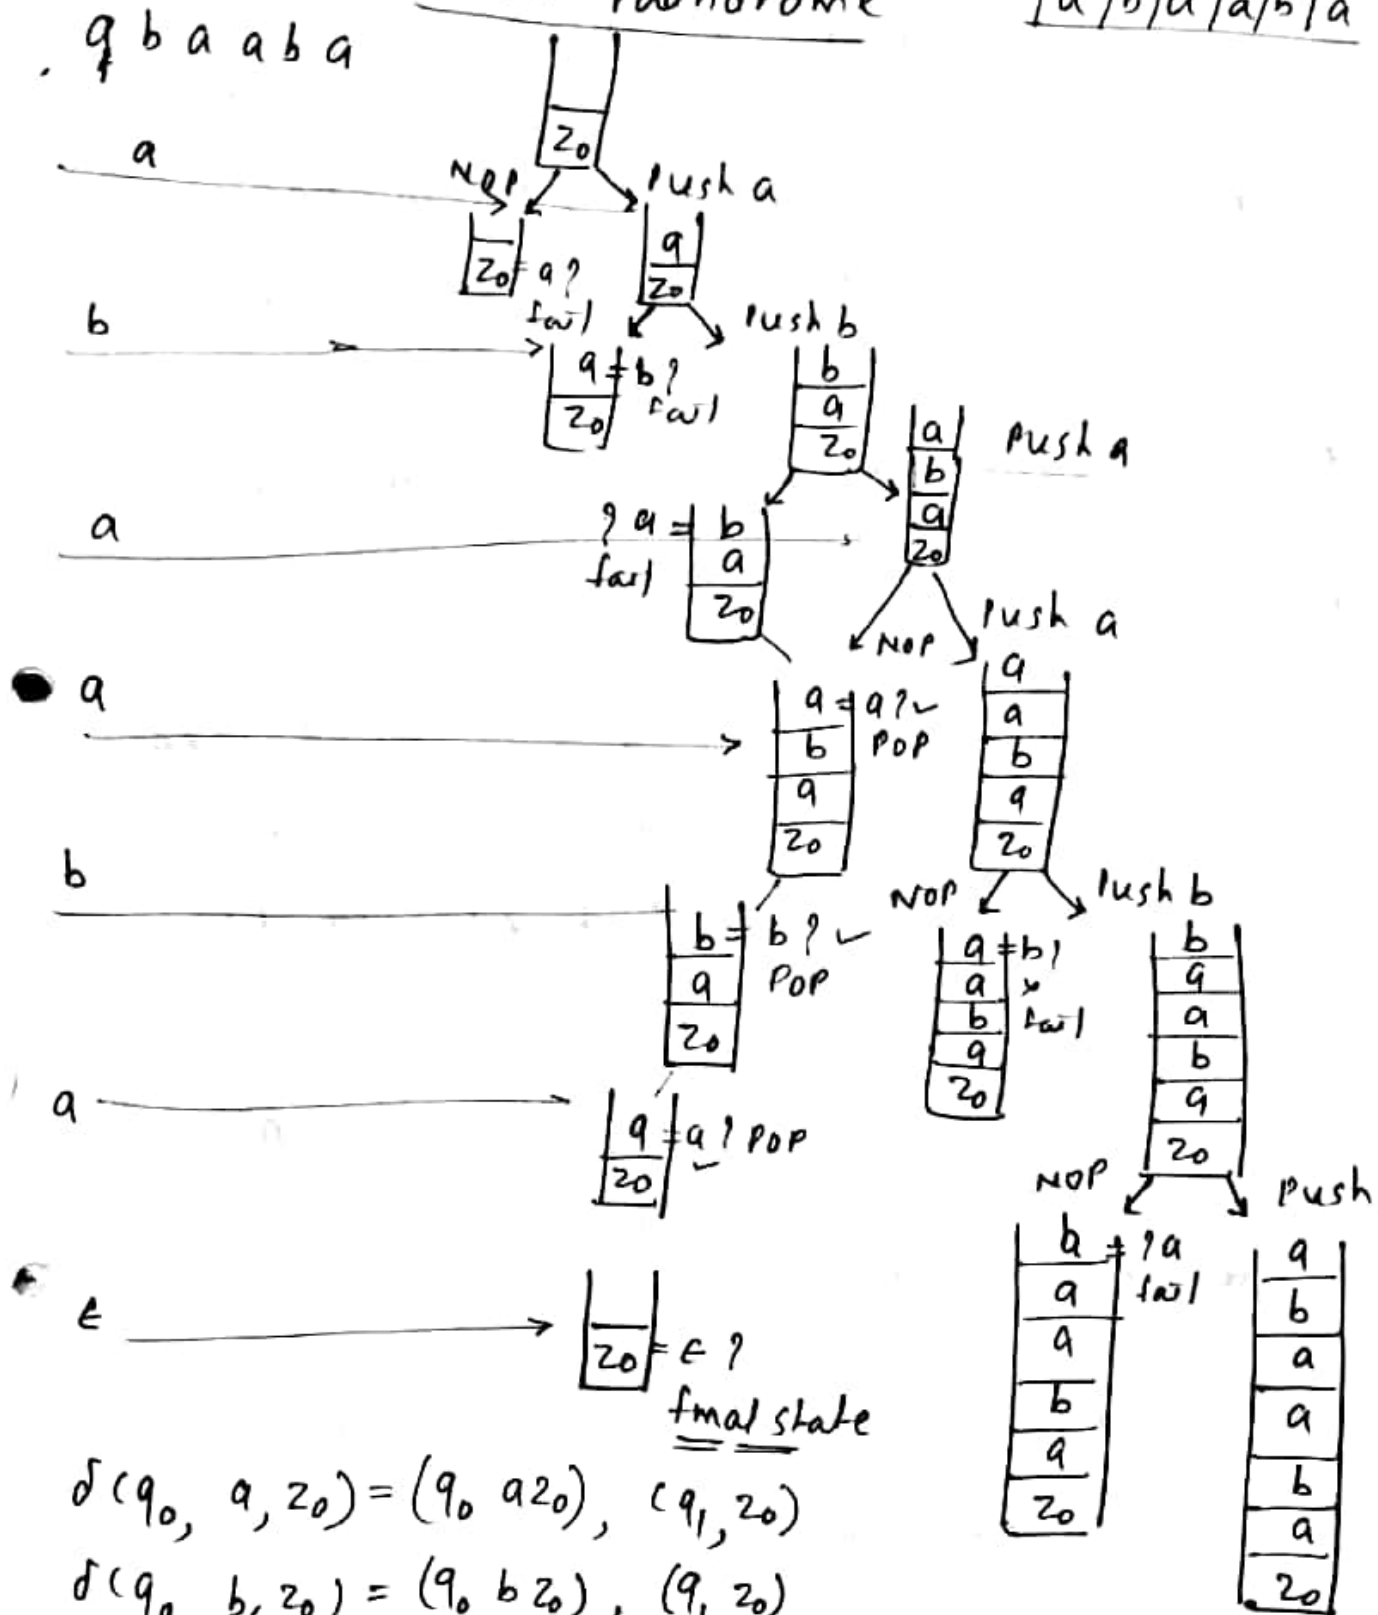 a b a a b a
a b a a b a
z₀
a
NOP
Push a
z₀ = a ?
fail
a
z₀
b
Push b
a = b ?
fail
z₀
b
a
z₀
a
b
a
z₀
Push a
a
? a = b
fail
a
z₀
NOP
Push a
a
a = a ? ✓
POP
b
a
z₀
a
a
b
a
z₀
b
NOP
Push b
b = b ? ✓
POP
a
z₀
a = b ?
a ×
b fail
a
z₀
b
a
a
b
a
z₀
a
a = a ? POP
✓
z₀
NOP
Push
b = ? a
fail
a
a
b
a
z₀
a
b
a
a
b
a
z₀
ε
z₀ = ε ?
final state
δ(q₀, a, z₀) = (q₀ a z₀), (q₁, z₀)
δ(q₀ b, z₀) = (q₀ b z₀), (q₁ z₀)